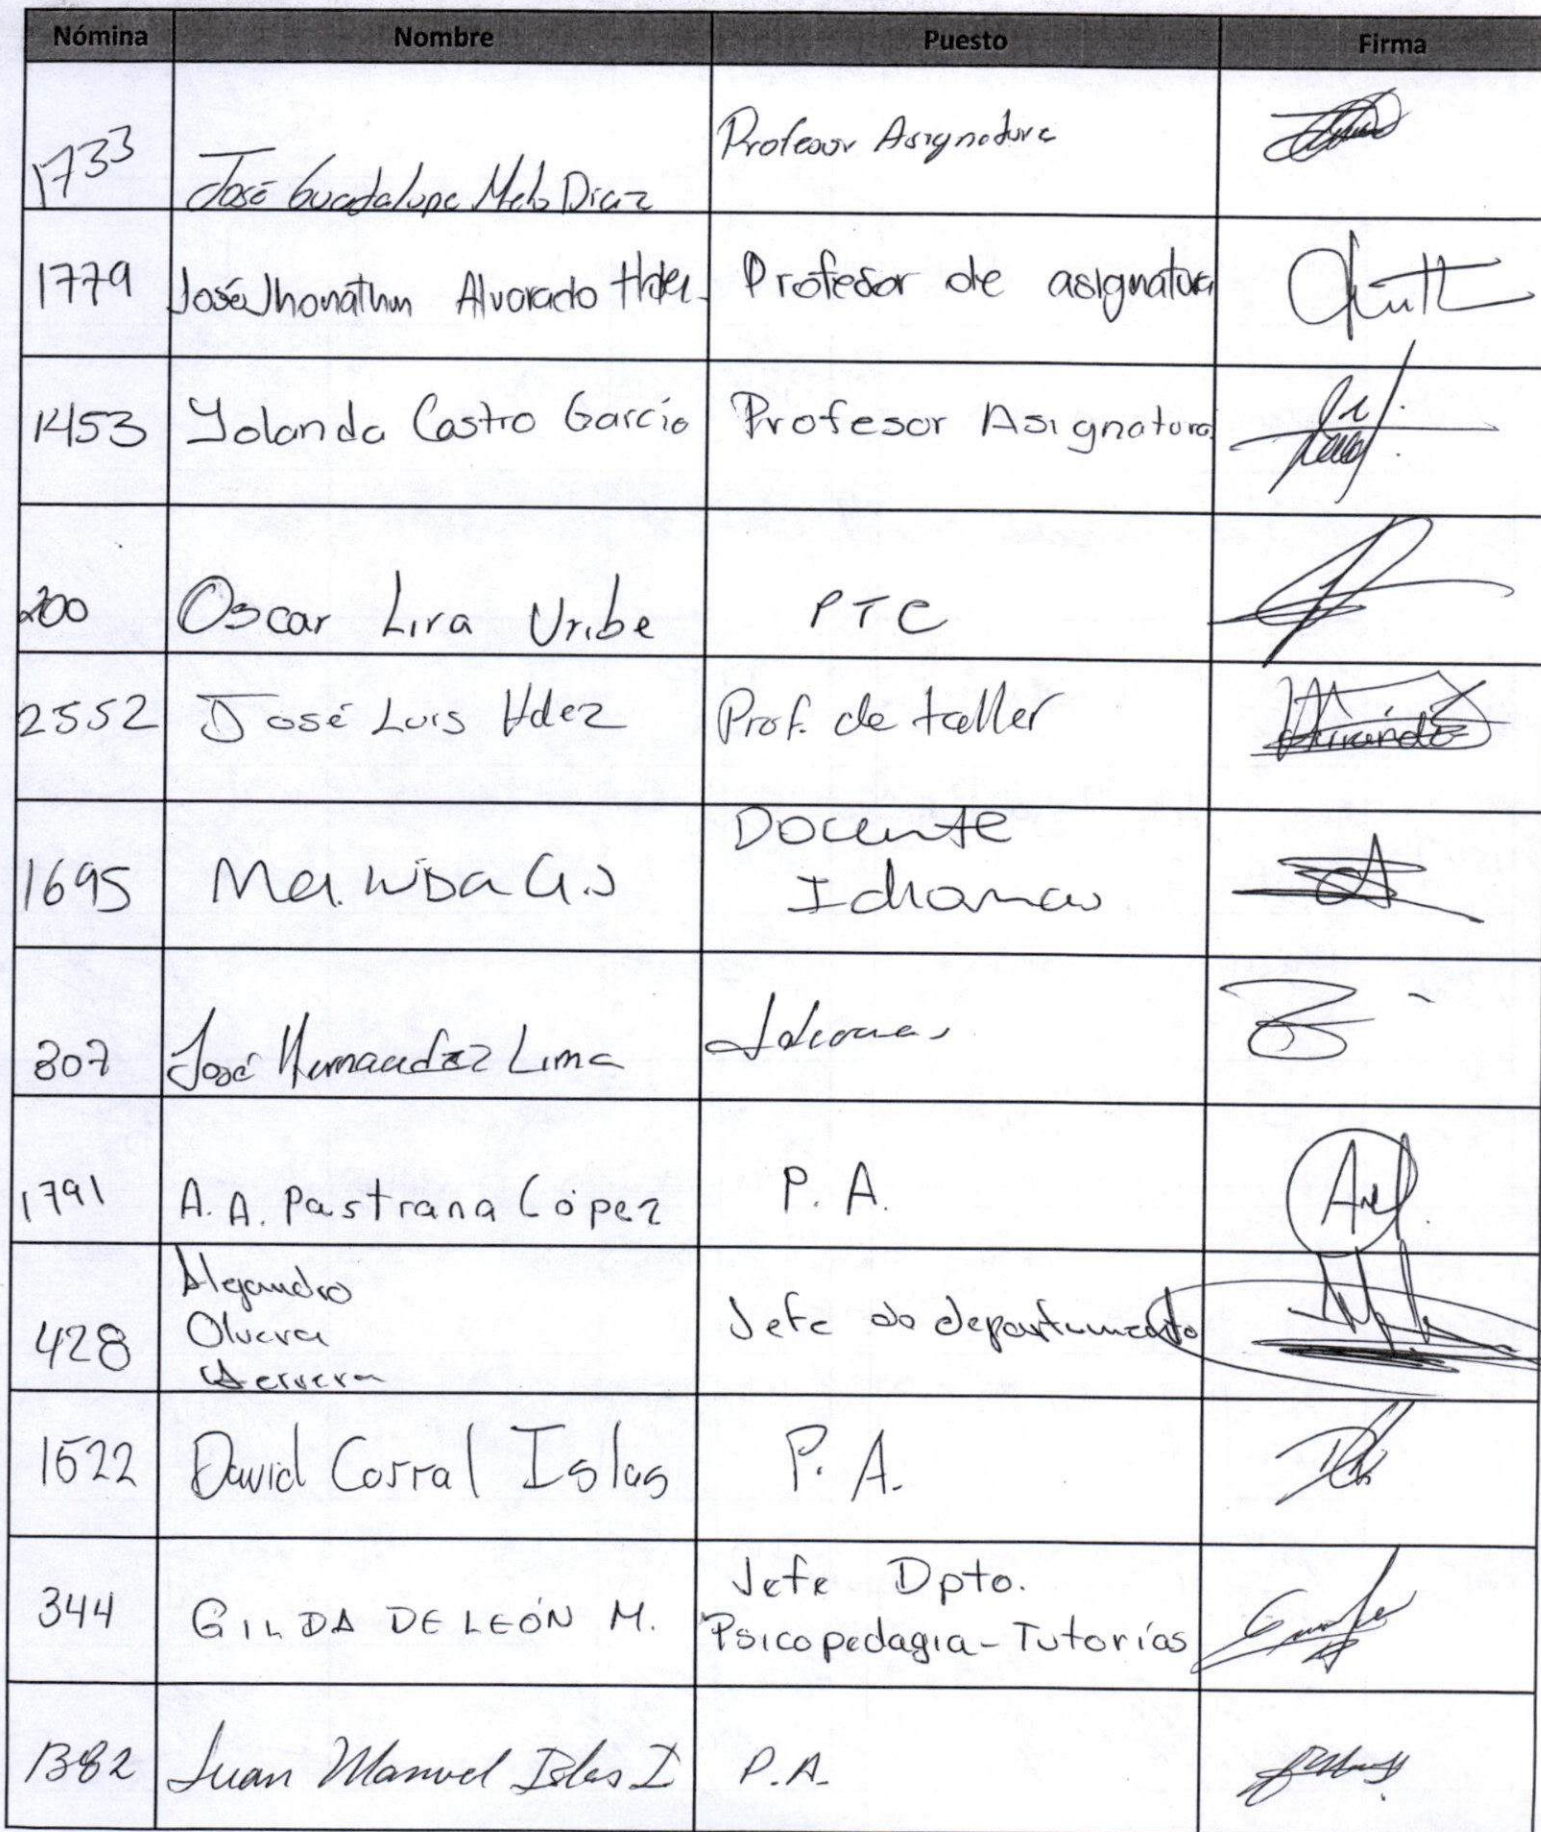 Nómina Nombre Puesto Firma
1733 José Guadalupe Melo Diaz Profesor Asignatura
1779 José Jhonathan Alvarado Hdez. Profesor de asignatura
1453 Yolanda Castro García Profesor Asignatura
200 Oscar Lira Uribe PTC
2552 José Luis Hdez Prof. de taller
1695 Ma. Luisa G.S Docente
Idiomas
307 José Hernandez Lima Idiomas
1791 A.A. Pastrana López P. A.
Alejandro
428 Olvera Jefe de departamento
Herrera
1522 David Corral Islas P. A.
344 GILDA DE LEÓN M. Jefe Dpto.
Psicopedagia - Tutorías
1382 Juan Manuel Islas I P.A.